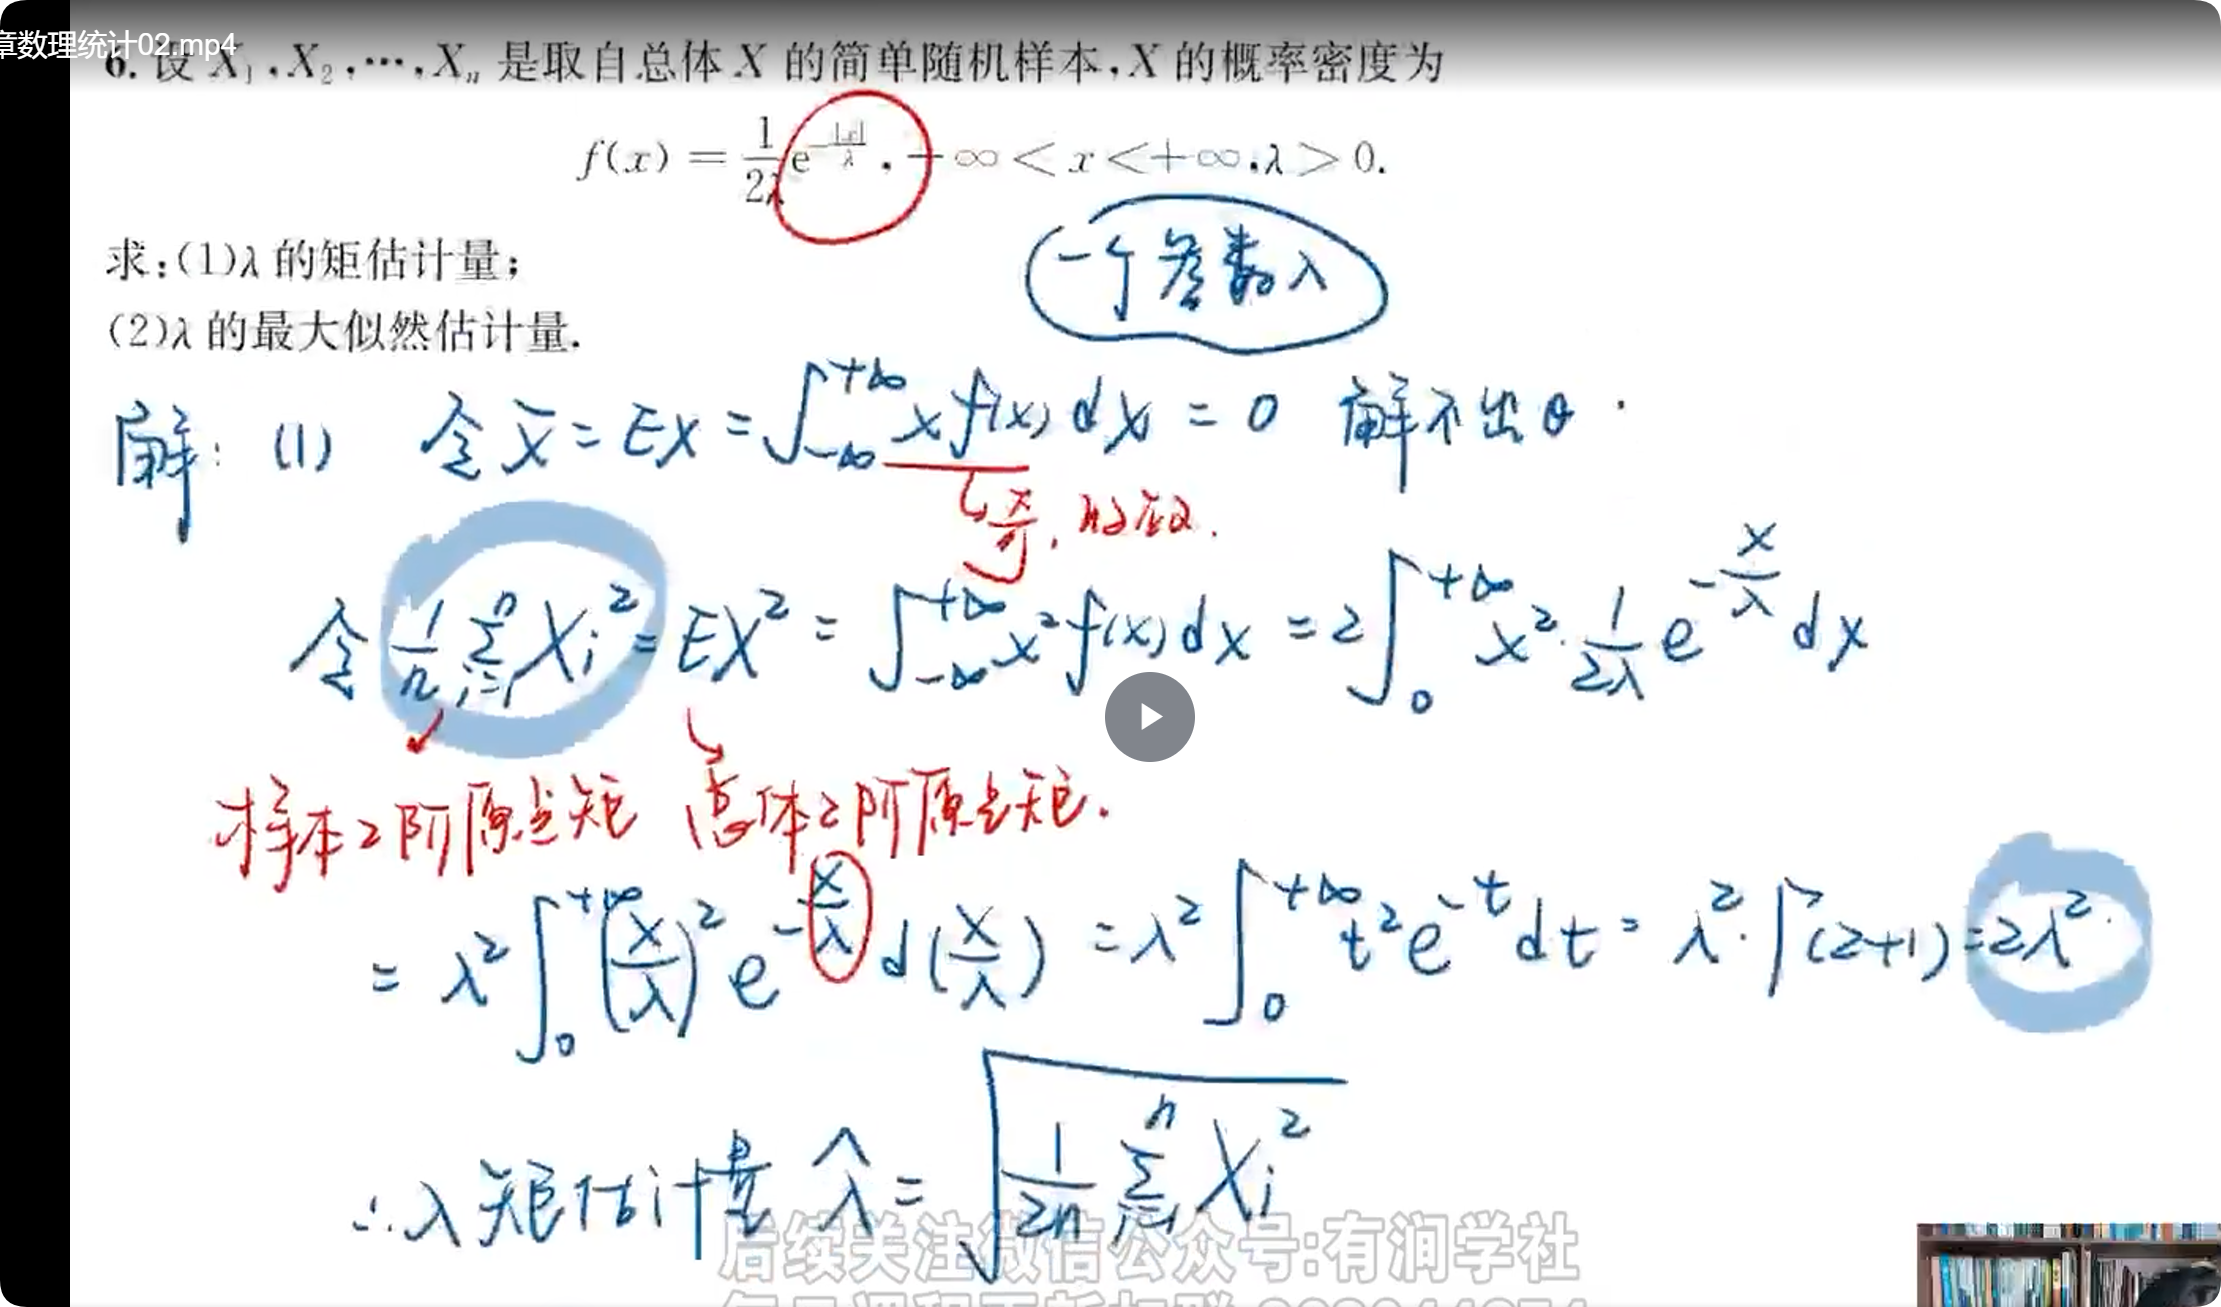 章数理统计02.mp4
6. 设 X₁,X₂,⋯,Xₙ 是取自总体 X 的简单随机样本,X 的概率密度为
f(x) = \frac{1}{2λ} e^{-\frac{|x|}{λ}}, -∞ < x < +∞, λ > 0.
求:(1)λ 的矩估计量;
一个参数 λ
(2)λ 的最大似然估计量.
解: (1) 令 \bar{X} = EX = \int_{-∞}^{+∞} x f(x) dx = 0 解不出 θ.
奇,收敛.
令 \frac{1}{n} \sum_{i=1}^{n} X_i^2 = EX^2 = \int_{-∞}^{+∞} x^2 f(x) dx = 2 \int_{0}^{+∞} x^2 · \frac{1}{2λ} e^{-\frac{x}{λ}} dx
样本2阶原点矩 总体2阶原点矩.
= λ^2 \int_{0}^{+∞} (\frac{x}{λ})^2 e^{-\frac{x}{λ}} d(\frac{x}{λ}) = λ^2 \int_{0}^{+∞} t^2 e^{-t} dt = λ^2 · Γ(2+1) = 2λ^2.
∴ λ 矩估计量 \hat{λ} = \sqrt{\frac{1}{2n} \sum_{i=1}^{n} X_i^2}
后续关注微信公众号:有润学社